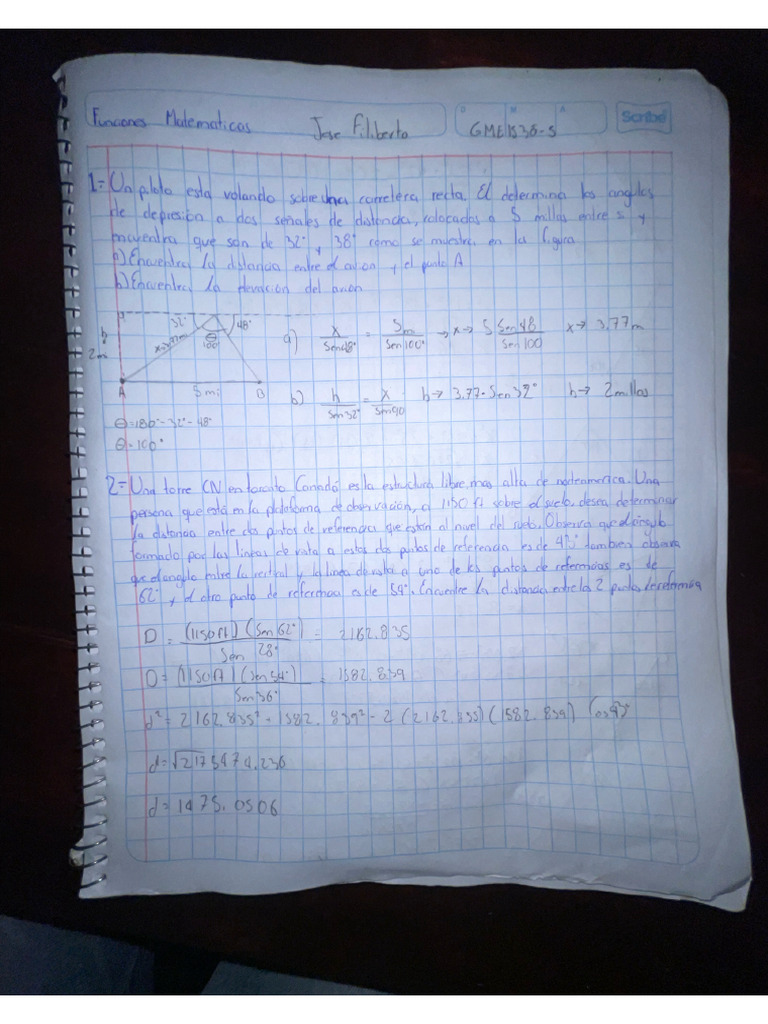 Funciones Matematicas Jose Filiberto D M A GME1S38-S Scribe
1= Un piloto esta volando sobre una carretera recta. El determina los angulos
de depresion a dos señales de distancia, colocados a 5 millas entre s y
encuentra que son de 32° y 38° como se muestra en la figura
a) Encuentra la distancia entre el avion y el punto A
b) Encuentra la elevacion del avion
32° 48°
θ
100°
x→3.77m
h
2m
A 5mi B
θ=180°-32°-48°
θ=100°
a) x/Sen48° = 5m/Sen100° → x→ 5 Sen48/Sen100 x→ 3.77m
b) h/Sen32° = x/Sen90 h→ 3.77·Sen32° h→ 2millas
2= Una torre CN en toronto Canadá es la estructura libre mas alta de norteamerica. Una
persona que está en la plataforma de observacion, a 1150 ft sobre el suelo, desea determinar
la distancia entre dos puntos de referencia que estan al nivel del suelo. Observa que el angulo
formado por las lineas de vista a estos dos puntos de referencia es de 43° tambien observa
que el angulo entre la vertical y la linea de vista a uno de los puntos de referencias es de
62° y el otro punto de referencia es de 54°. Encuentre la distancia entre los 2 puntos de referencia
D = (1150ft) (Sen 62°) / Sen 28° = 2162.835
D = (1150ft) (Sen 54°) / Sen 36° = 1582.839
d² = 2162.835² - 1582.839² - 2 (2162.835) (1582.839) Cos43°
d=√2175474.236
d= 1475.0506